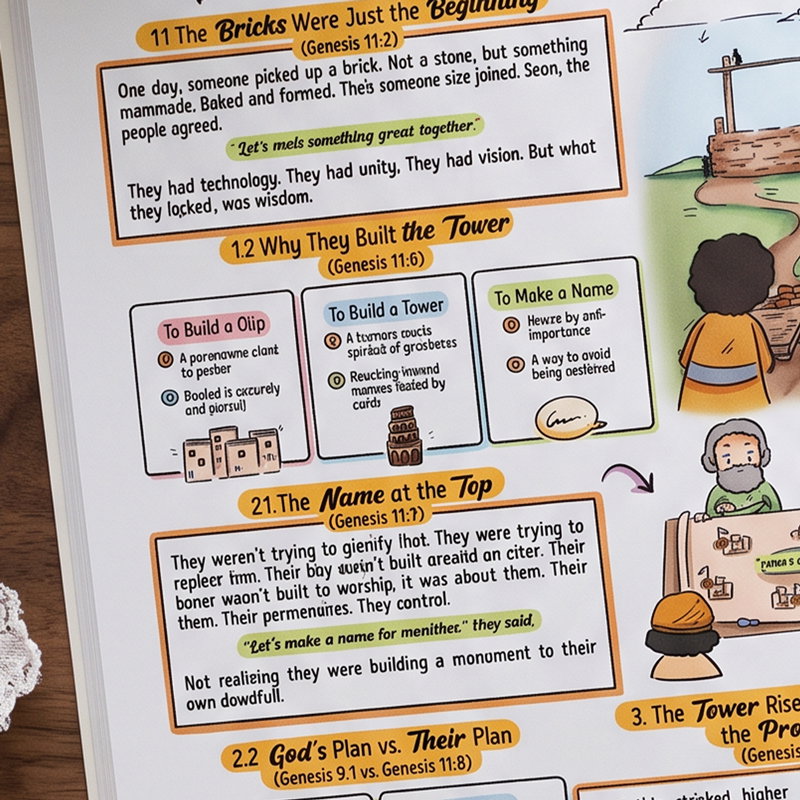 11 The Bricks Were Just the Beginning
(Genesis 11:2)
One day, someone picked up a brick. Not a stone, but something
mammade. Baked and formed. Theis someone size joined. Seon, the
people agreed.
"Let's mels something great together."
They had technology. They had unity. They had vision. But what
they locked, was wisdom.
1.2 Why They Built the Tower
(Genesis 11:6)
To Build a Olip
A porenawne clant
to pesber
Booled is cxcurely
and
To Build a Tower
A
of grosbetes
by
cards
To Make a Name
Hewre by anfi-
importance
A way to avoid
being
21.The Name at the Top
(Genesis 11:7)
They weren't trying to They were trying to
Their built an citer. Their
boner waon't built to worship, it was about them. Their
them. Their They control.
"Let's make a name for menither." they said,
Not realizing they were building a monument to their
own dowdfull.
2.2 God's Plan vs. Their Plan
(Genesis 9.1 vs. Genesis 11:8)
3. The Tower Rise
the Pro
(Genesis
higher